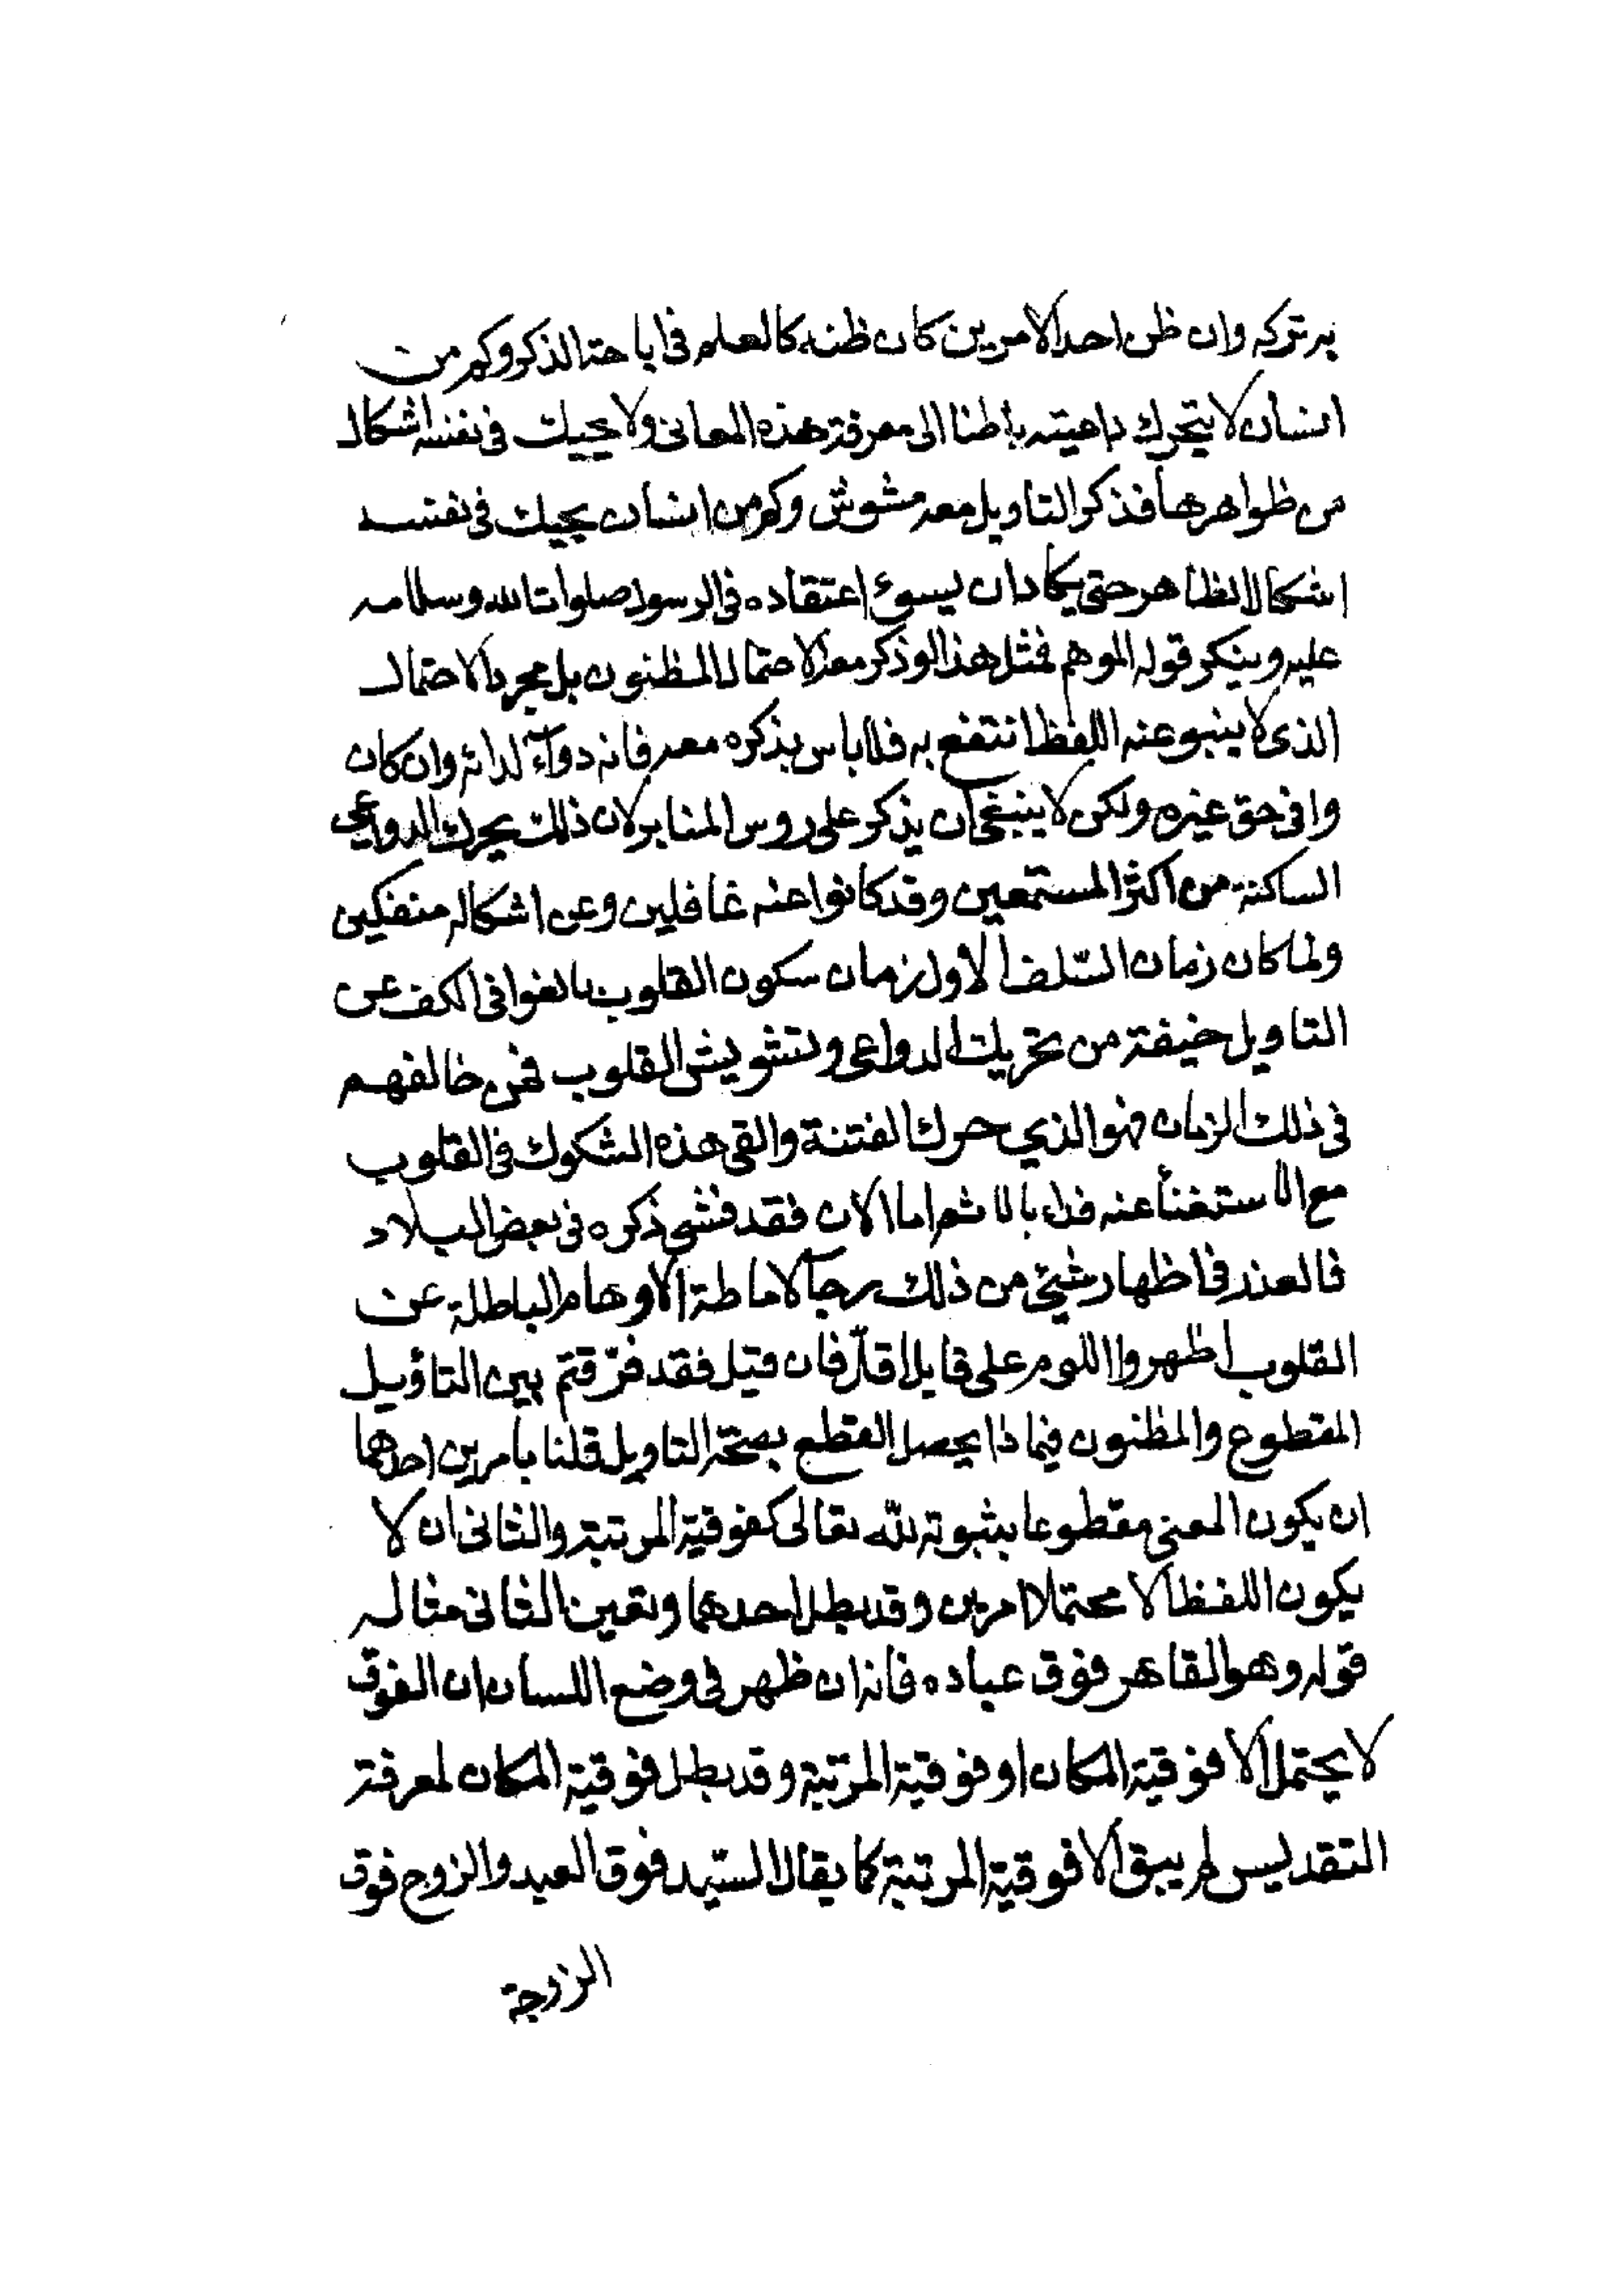 به تركه وان ظن احد الامرين كان ظنه كالعلم في اباحة الذكر وكم من
انسان لا يتحرك داعيته باطنا الى معرفة هذه المعاني ولا يحيك في نفسه اشكال
من ظواهرها فذكر التاويل معه مشوش وكم من انسان يحيك في نفسه
اشكال الظاهر حتى يكاد ان يسوء اعتقاده في الرسول صلوات الله وسلامه
عليه وينكر قوله الموهم فمثل هذا لو ذكر معه الاحتمال المظنون بل مجرد الاحتمال
الذي لا ينبو عنه اللفظ انتفع به فلا باس بذكره معه فانه دوآء لدائه وان كان
دا في حق غيره ولكن لا ينبغي ان يذكر على روس المنابر لان ذلك يحرك الدواعي
الساكنة من اكثر المستمعين وقد كانوا عنه غافلين وعن اشكاله منفكين
ولما كان زمان السّلف الاول زمان سكون القلوب بالغوا في الكف عن
التاويل خيفة من تحريك الدواعي وتشويش القلوب فمن خالفهم
في ذلك الزمان فهو الذي حرك الفتنة والقى هذه الشكوك في القلوب
مع الاستغنأ عنه فباء بالاثم اما الان فقد فشى ذكره في بعض البلاد
فالعذر في اظهار شيئ من ذلك رجآ لاماطة الاوهام الباطلة عن
القلوب اظهر واللوم على قايله اقلّ فان قيل فقد فرّقتم بين التاؤيل
المقطوع والمظنون فيما ذا يحصل القطع بصحة التاويل قلنا بامرين احدهما
ان يكون المعنى مقطوعا بثبوته لله تعالى كفوقية المرتبة والثاني ان لا
يكون اللفظ الا محتملا امرين وقد بطل احدهما وتعين الثاني مثاله
قوله وهو القاهر فوق عباده فانه ان ظهر في وضع اللسان ان الفوق
لا يحتمل الا فوقية المكان او فوقية المرتبة وقد بطل فوقية المكان لمعرفة
التقديس لم يبق الا فوقية المرتبة كما يقال السّيد فوق العبد والزوج فوق
الزوجة